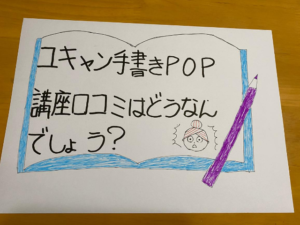 ユキャン手書きPOP
講座口コミはどうなん
でしょう?